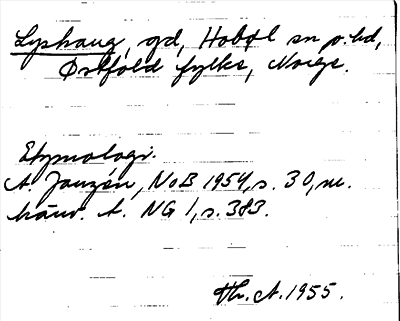 Lyshaug, gd, Hobøl sn p.bd,
Østfold fylke, Norge.
Etymologi.
A. Janzén, NoB 1954, s. 30, m.
hänv. t. NG 1, s. 383.
Th. A. 1955.